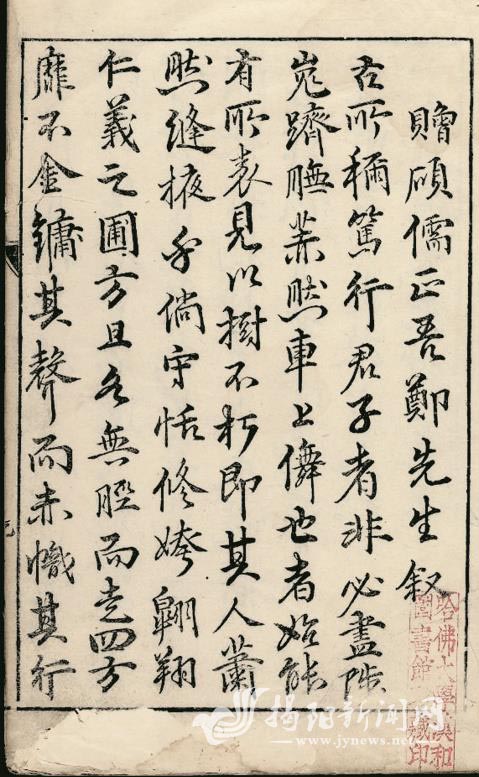 贈碩儒正吾鄭先生叙
古所稱篤行君子者非必盡陟
嵬躋膴然車上儛也者始能
有所表見以樹不朽即其人蕭
然縫掖乎倘守恬修姱翱翔
仁義之圃方且名無脛而走四方
靡不金鏞其聲而赤幟其行
哈佛大學漢和
圖書館藏印
揭阳新闻网
www.jynews.net